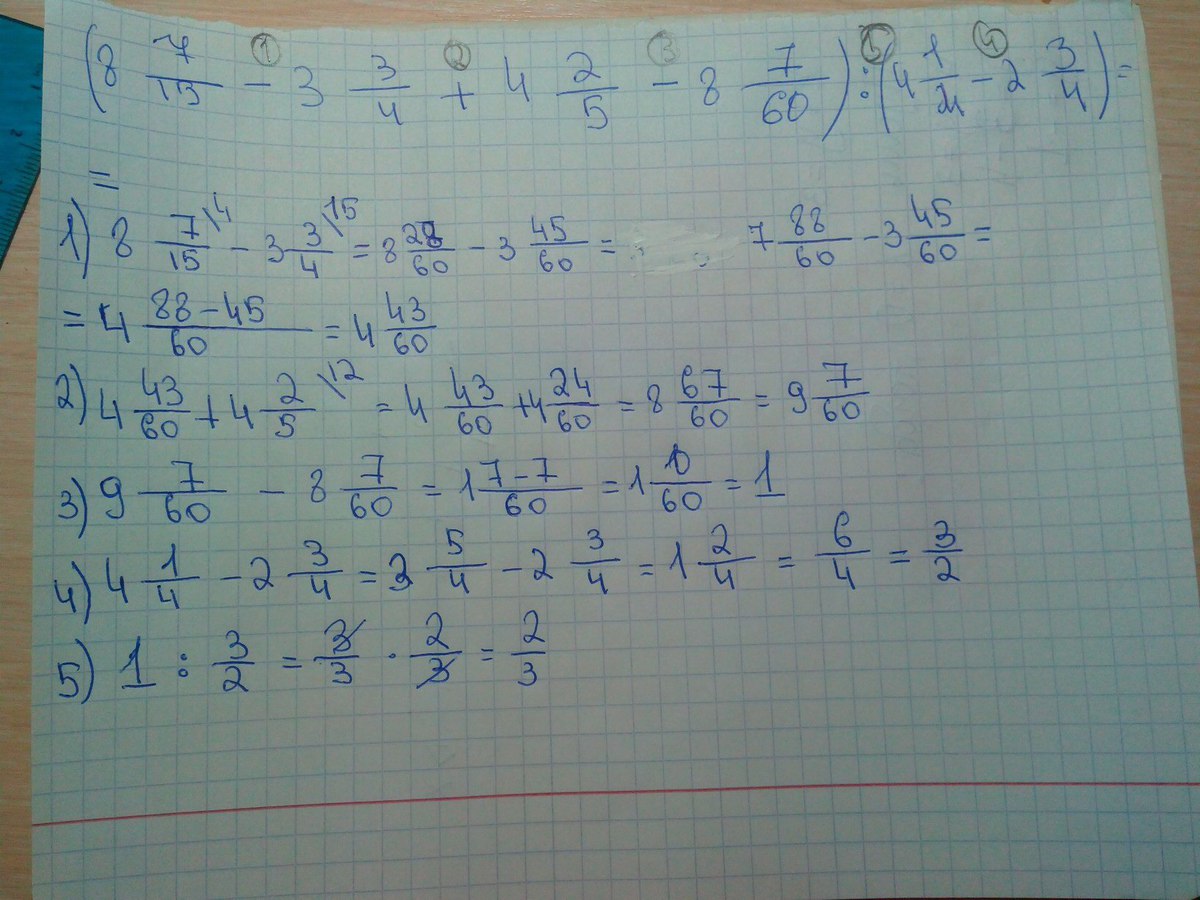 ① ② ③ ⑤ ④
(8 7/15 - 3 3/4 + 4 2/5 - 8 7/60) : (4 1/4 - 2 3/4) =
=
1) 8 7/15 \4 - 3 3/4 \15 = 8 28/60 - 3 45/60 = 7 88/60 - 3 45/60 =
= 4 (88-45)/60 = 4 43/60
2) 4 43/60 + 4 2/5 \12 = 4 43/60 + 4 24/60 = 8 67/60 = 9 7/60
3) 9 7/60 - 8 7/60 = 1 (7-7)/60 = 1 0/60 = 1
4) 4 1/4 - 2 3/4 = 3 5/4 - 2 3/4 = 1 2/4 = 6/4 = 3/2
5) 1 : 3/2 = 3/3 · 2/3 = 2/3